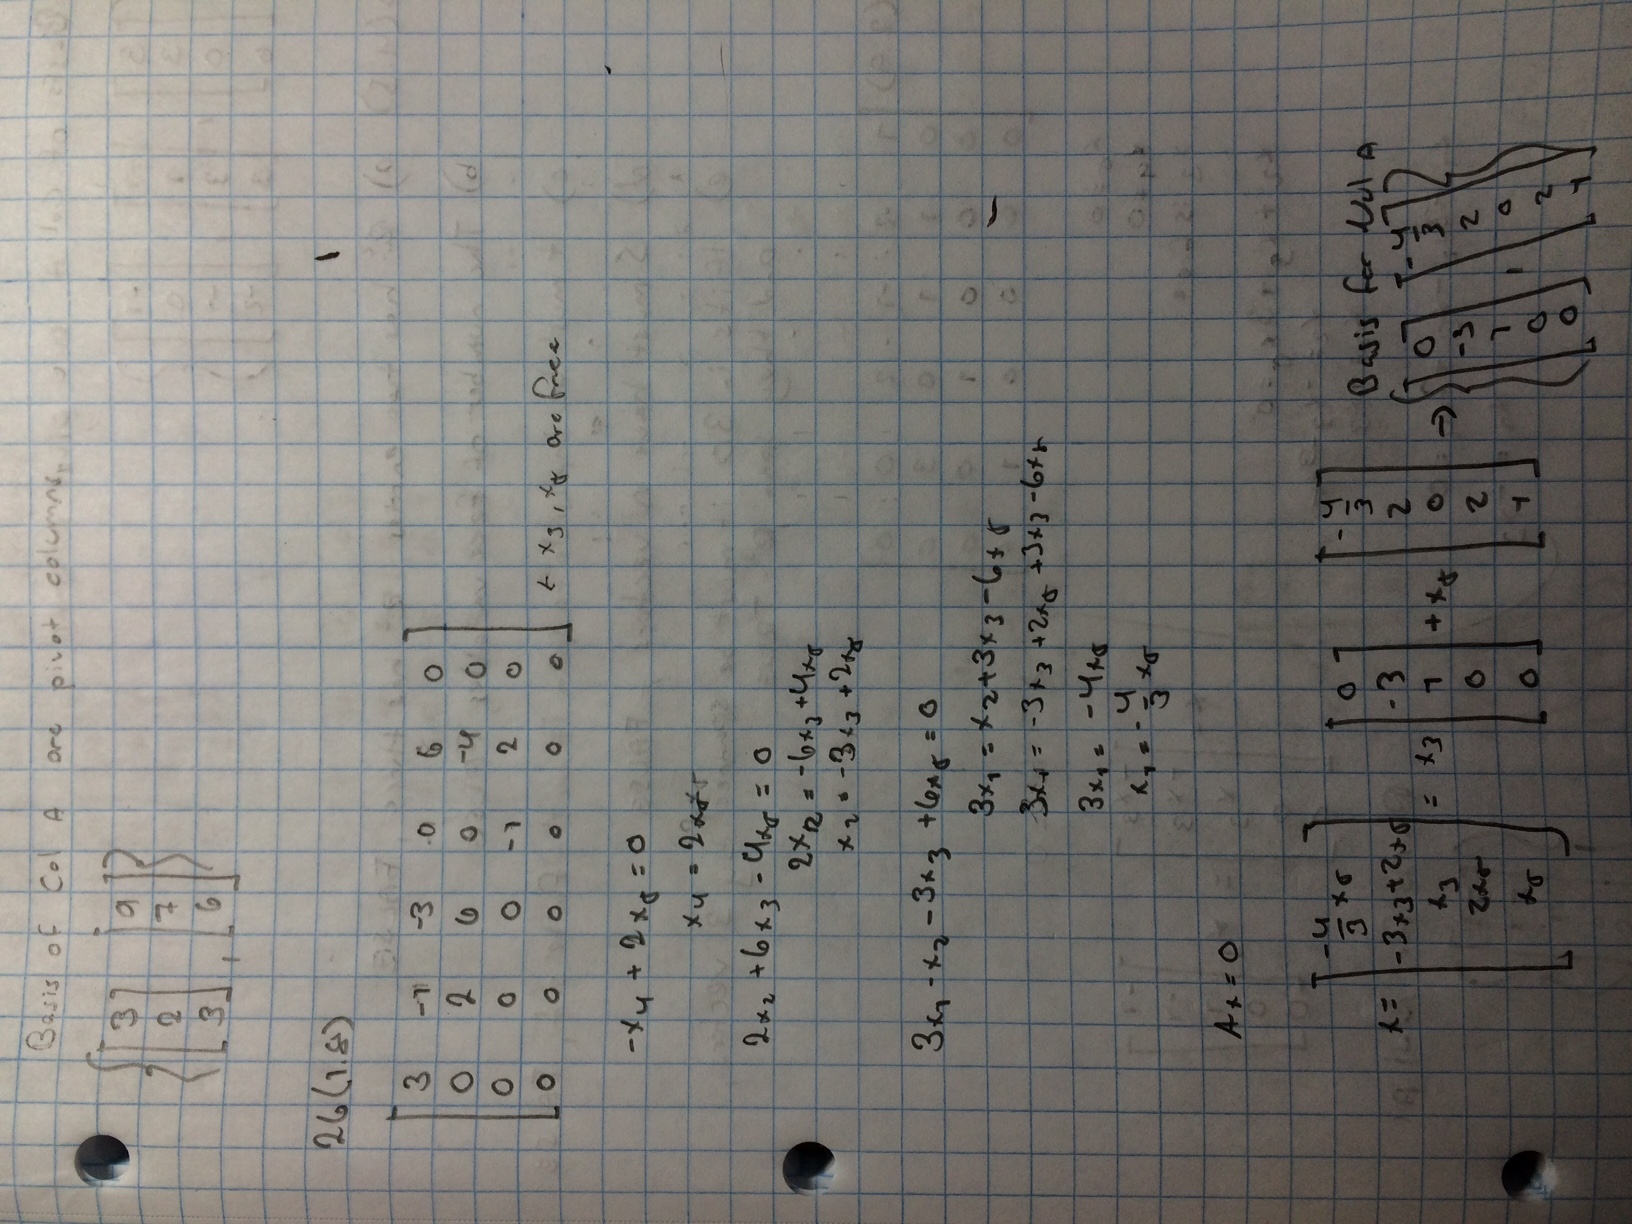 Basis of Col A are pivot columns
{[3 2 3], [9 7 6]}
26(1.8)
[3 -1 -3 0 6 0
0 2 6 0 -4 0
0 0 0 -1 2 0
0 0 0 0 0 0] ← x3, x5 are free
-x4 + 2x5 = 0
x4 = 2x5
2x2 + 6x3 - 4x5 = 0
2x2 = -6x3 + 4x5
x2 = -3x3 + 2x5
3x1 - x2 - 3x3 + 6x5 = 0
3x1 = x2 + 3x3 - 6x5
3x1 = -3x3 + 2x5 + 3x3 - 6x5
3x1 = -4x5
x1 = -4/3 x5
Ax = 0
x = [-4/3 x5, -3x3 + 2x5, x3, 2x5, x5] = x3 [0 -3 1 0 0] + x5 [-4/3 2 0 2 1] → Basis for Nul A
{[0 -3 1 0 0], [-4/3 2 0 2 1]}